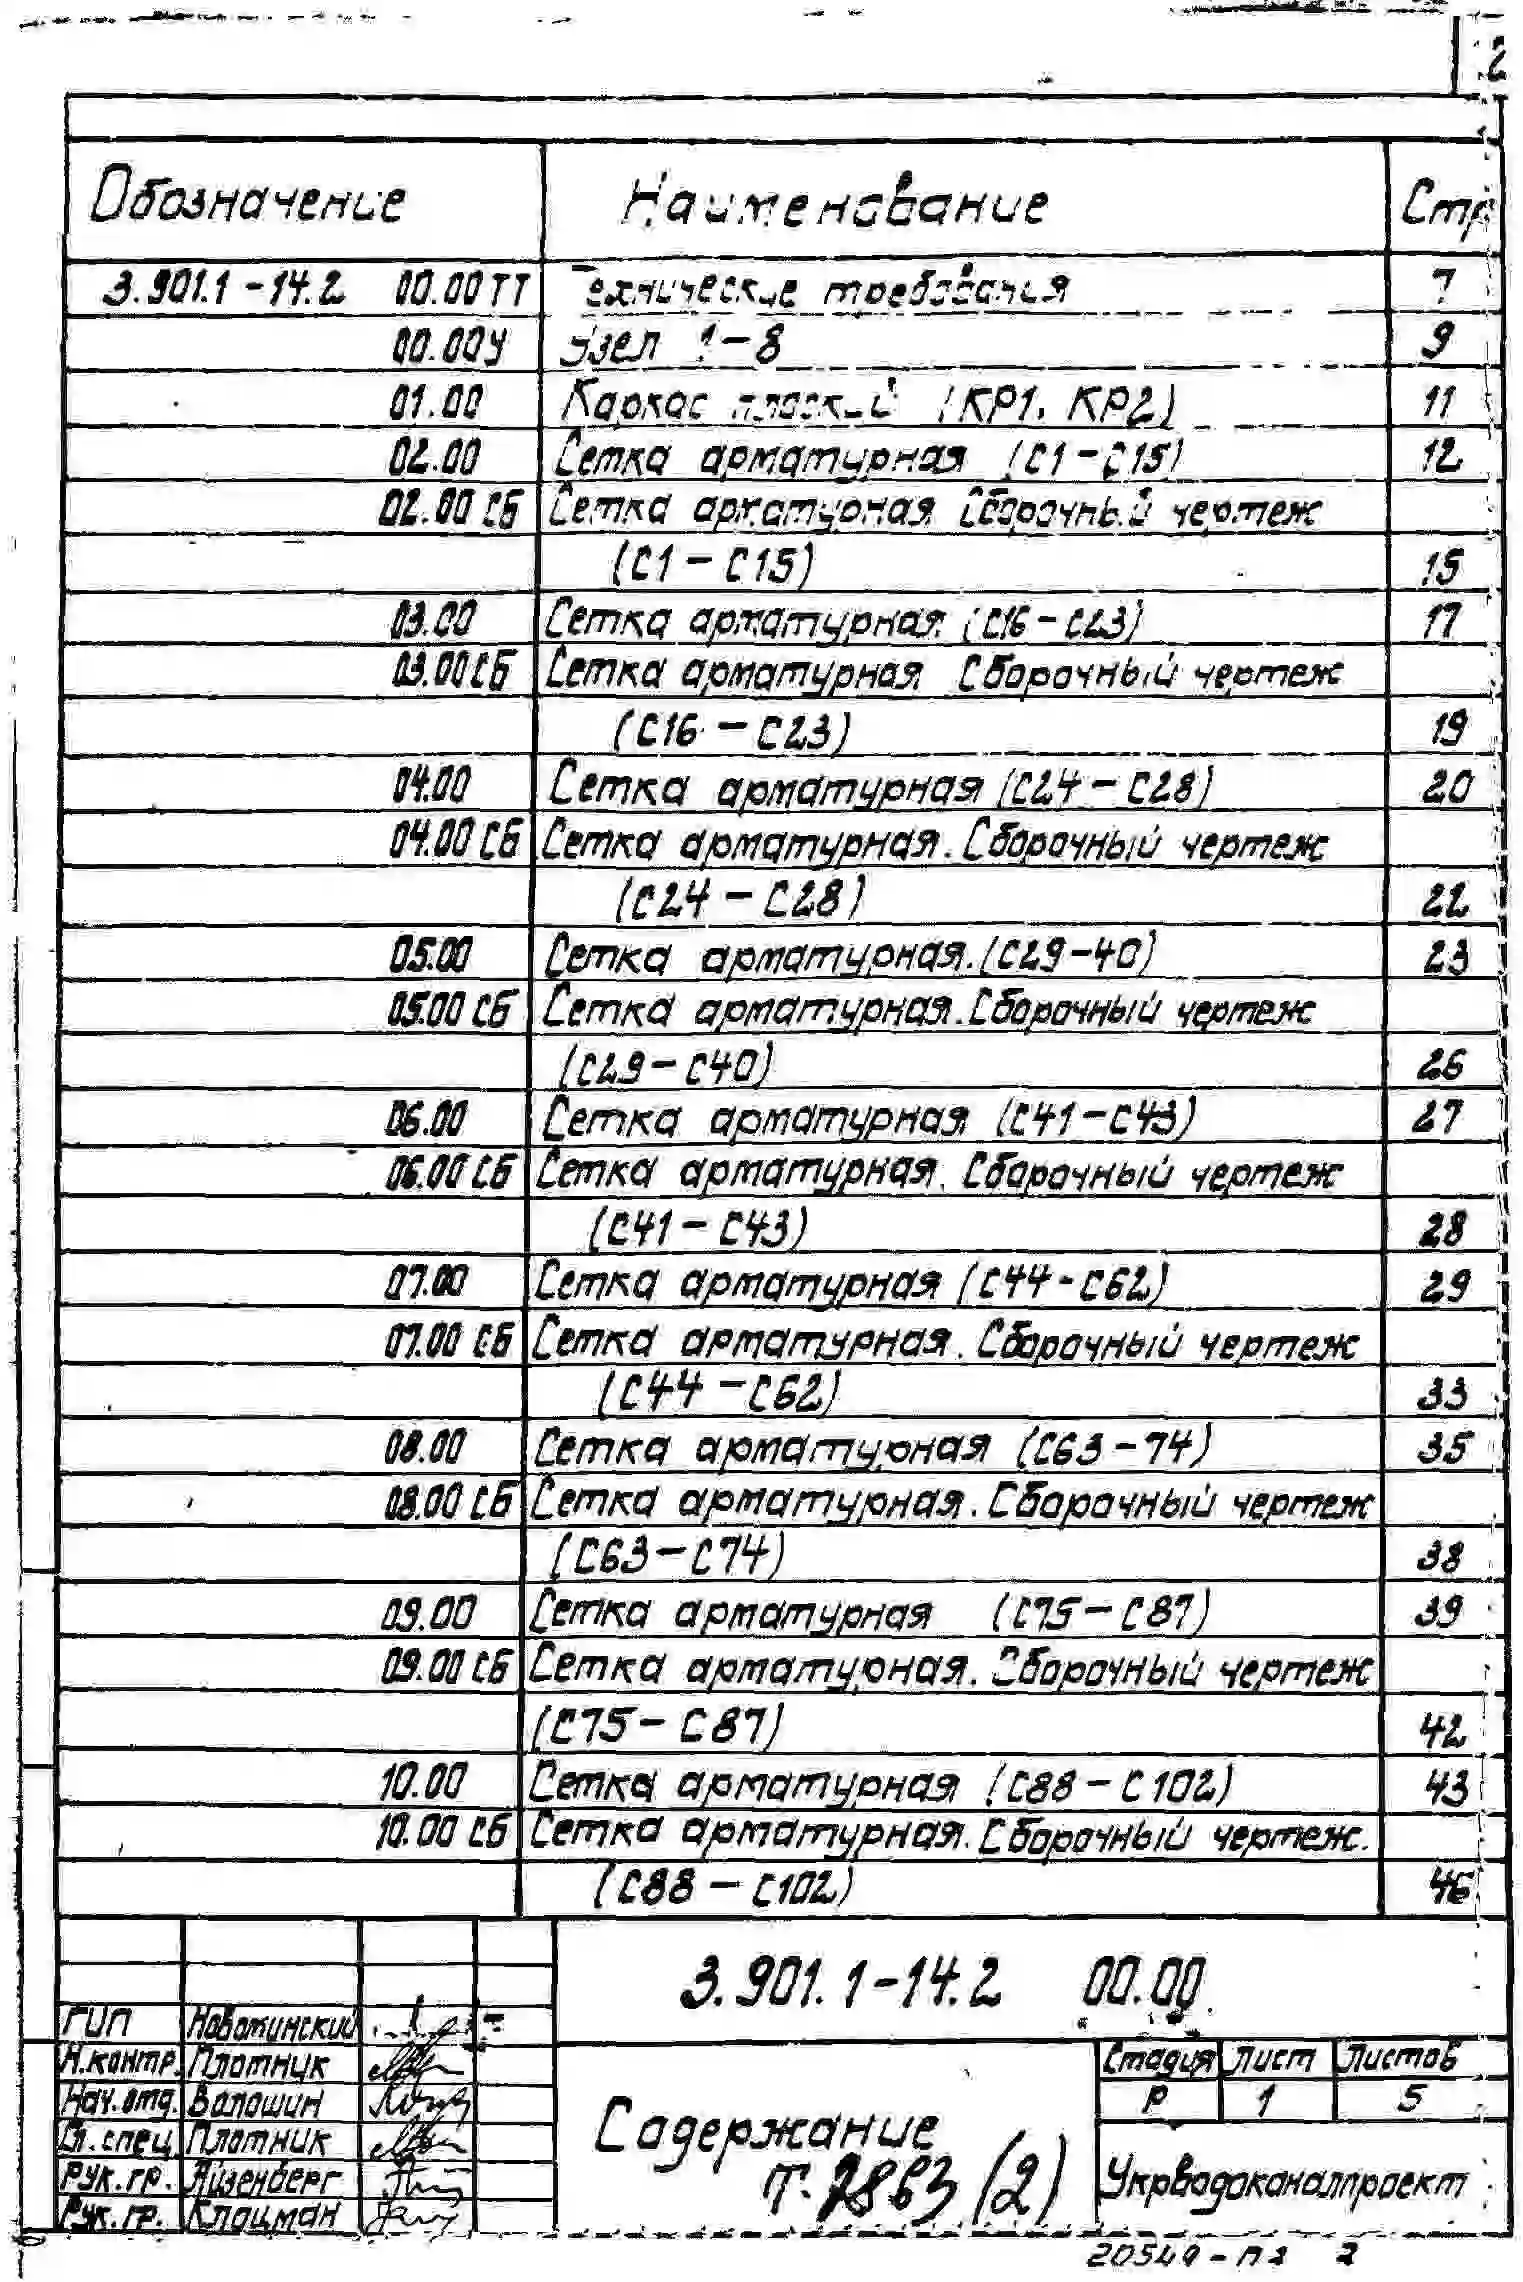 2
Обозначение Наименование Стр
3.901.1-14.2 00.00 ТТ Технические требования 7
00.00У Узел 1-8 9
01.00 Каркас плоский (КР1, КР2) 11
02.00 Сетка арматурная (С1-С15) 12
02.00 СБ Сетка арматурная Сборочный чертеж
(С1-С15) 15
03.00 Сетка арматурная (С16-С23) 17
03.00 СБ Сетка арматурная Сборочный чертеж
(С16-С23) 19
04.00 Сетка арматурная (С24-С28) 20
04.00 СБ Сетка арматурная. Сборочный чертеж
(С24-С28) 22
05.00 Сетка арматурная. (С29-40) 23
05.00 СБ Сетка арматурная. Сборочный чертеж
(С29-С40) 26
06.00 Сетка арматурная (С41-С43) 27
06.00 СБ Сетка арматурная. Сборочный чертеж
(С41-С43) 28
07.00 Сетка арматурная (С44-С62) 29
07.00 СБ Сетка арматурная. Сборочный чертеж
(С44-С62) 33
08.00 Сетка арматурная (С63-74) 35
08.00 СБ Сетка арматурная. Сборочный чертеж
(С63-С74) 38
09.00 Сетка арматурная (С75-С87) 39
09.00 СБ Сетка арматурная. Сборочный чертеж
(С75-С87) 42
10.00 Сетка арматурная (С88-С102) 43
10.00 СБ Сетка арматурная. Сборочный чертеж.
(С88-С102) 46
3.901.1-14.2 00.00
ГИП Новоминский
Н.контр. Плотник
Нач.отд. Волошин
Гл.спец. Плотник
Рук.гр. Айзенберг
Рук.гр. Клоцман
Содержание
Т. 2863 (2)
Стадия Лист Листов
Р 1 5
Укрводоканалпроект